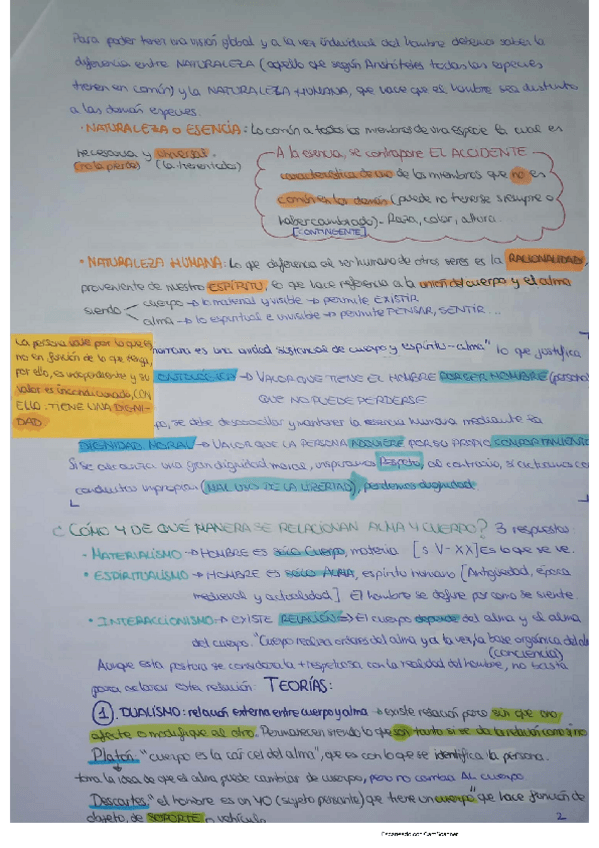 Para poder tener una visión global y a la vez individual del hombre debemos saber la
diferencia entre NATURALEZA (aquello que según Aristóteles todas las especies
tienen en común) y la NATURALEZA HUMANA, que hace que el hombre sea distinto
a las demás especies.
· NATURALEZA o ESENCIA: Lo común a todos los miembros de una especie la cual es
necesaria y universal.
(no la pierde) (la tienen todos)
A la esencia, se contrapone EL ACCIDENTE
característica de uno de los miembros que no es
común en los demás (puede no tenerse siempre o
haber cambiado) - Raza, color, altura.
[CONTINGENTE]
· NATURALEZA HUMANA: Lo que diferencia al ser humano de otros seres es la RACIONALIDAD,
proveniente de nuestro ESPÍRITU, lo que hace referencia a la unión del cuerpo y el alma
siendo
cuerpo → lo material y visible → permite EXISTIR
alma → lo espiritual e invisible → permite PENSAR, SENTIR...
La persona vale por lo que es,
no en función de lo que tenga,
por ello, es independiente y su
valor es incondicionado, CON
ELLO. TIENE UNA DIGNI-
DAD
humano es una unidad sustancial de cuerpo y espíritu-alma" lo que justifica
ONTOLÓGICA → VALOR QUE TIENE EL HOMBRE POR SER HOMBRE (persona)
QUE NO PUEDE PERDERSE
se debe desarrollar y mantener la esencia humana mediante la
DIGNIDAD MORAL → VALOR QUE LA PERSONA ADQUIERE POR SU PROPIO COMPORTAMIENTO
Si se alcanza una gran dignidad moral, inspiramos Respeto, al contrario, si actuamos con
conductas impropias (MAL USO DE LA LIBERTAD), perdemos dignidad.
¿CÓMO Y DE QUÉ MANERA SE RELACIONAN ALMA Y CUERPO? 3 respuestas:
· MATERIALISMO → HOMBRE ES SÓLO Cuerpo, materia [s. V-XX] Es lo que se ve.
· ESPIRITUALISMO → HOMBRE ES SÓLO ALMA, espíritu humano [Antigüedad, época
medieval y actualidad] El hombre se define por como se siente.
· INTERACCIONISMO → EXISTE RELACIÓN ⇒ El cuerpo depende del alma y el alma
del cuerpo. "Cuerpo realiza ordenes del alma y a la vez, la base orgánica del
(conciencia)
Aunque esta postura se considera la + respetuosa con la realidad del hombre, no basta
para aclarar esta relación. TEORÍAS:
1. DUALISMO: relación externa entre cuerpo y alma → existe relación pero sin que uno
afecte o modifique al otro. Permanecen siendo lo que son tanto si se da la relación como si no
Platón: "cuerpo es la cárcel del alma", que es con lo que se identifica la persona.
toma la idea de que el alma puede cambiar de cuerpo, pero no cambia AL cuerpo
Descartes: "el hombre es un YO (sujeto pensante) que tiene un cuerpo" que hace función de
objeto, de SOPORTE o vehículo.
2
Escaneado con CamScanner